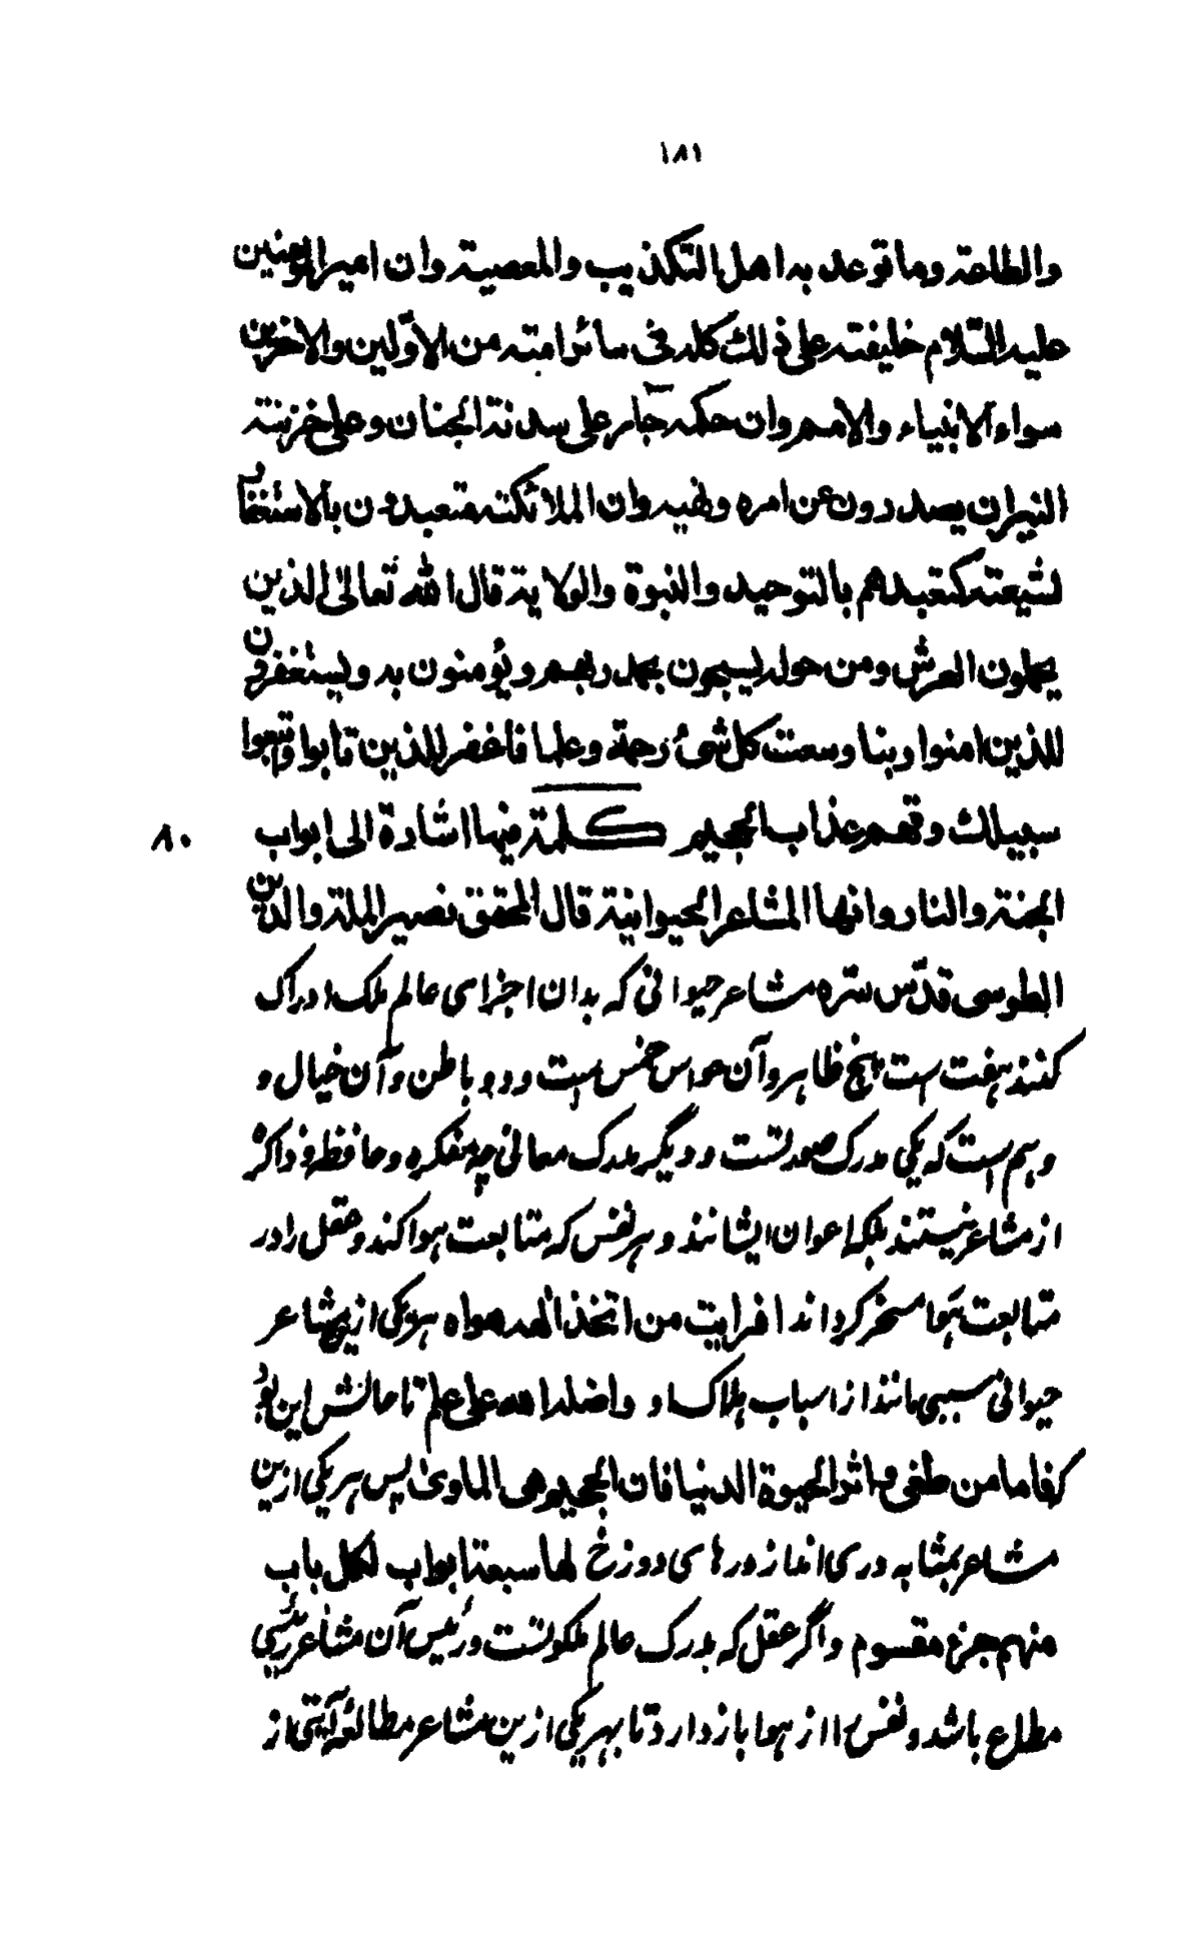 ١٨١
والطاعة وما توعد به اهل التكذيب والمعصية وان امير المؤمنين
عليه السّلام خليفته على ذلك كله فى سائر امته من الاوّلين والاخرين
سواء الانبياء والامم وان حكمه جار على سدنة الجنان وعلى خزينة
النيران يصدرون عن امره ونهيه وان الملائكة متعبدون بالاستغفار
لشيعته كتعبدهم بالتوحيد والنبوة والولاية قال الله تعالى الذين
يحملون العرش ومن حوله يسبحون بحمد ربهم ويؤمنون به ويستغفرون
للذين امنوا ربنا وسعت كل شئ رحمة وعلما فاغفر للذين تابوا واتبعوا
سبيلك وقهم عذاب الجحيم كلمة فيها اشارة الى ابواب
٨٠
الجنة والنار وانها المشاعر الحيوانية قال المحقق نصير الملة والدين
الطوسى قدّس سّره مشاعر حیوانی که بدان اجزای عالم ملک ادراک
کنند هفت است پنج ظاهر وآن حواس خمس است ودو باطن وآن خیال و
وهم است که یکی مدرک صورتست ودیگر مدرک معانی چه مفکره وحافظه وذاکره
از مشاعر نیستند بلکه اعوان ایشانند وهر نفس که متابعت هوا کند وعقل را در
متابعت هوا مسخر کرداند افرايت من اتخذ الهه هواه هر یکی از این مشاعر
حیوانی سببی باشد از اسباب هلاک او واضله الله على علم تا حالش این بود
که فاما من طغى واثر الحيوة الدنيا فان الجحيم هى الماوى پس هر یکی ازین
مشاعر بمثابه دری اند از درهای دوزخ لها سبعة ابواب لكل باب
منهم جزء مقسوم واگر عقل که مدرک عالم ملکوتست ورئیس آن مشاعر رئیسی
مطاع باشد ونفس را از هوا باز دارد تا بهر یکی ازین مشاعر مطالعه آیتی از